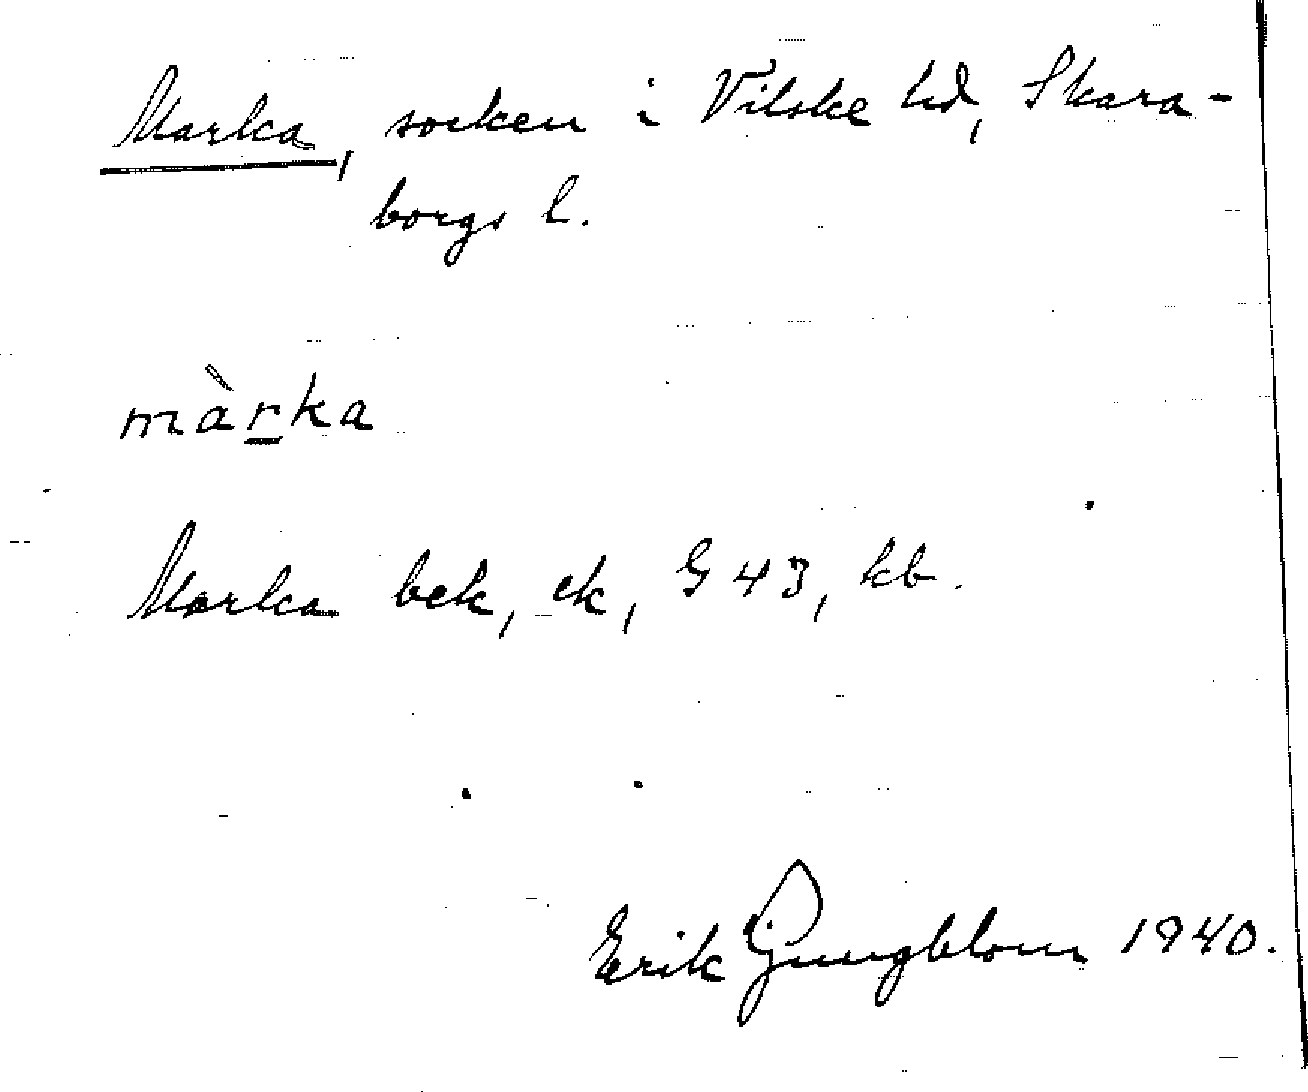 Marka, socken i Vilske hd, Skara-
borgs l.
màrka
Marka bek, ek, G 43, kb.
Erik Ljungblom 1940.